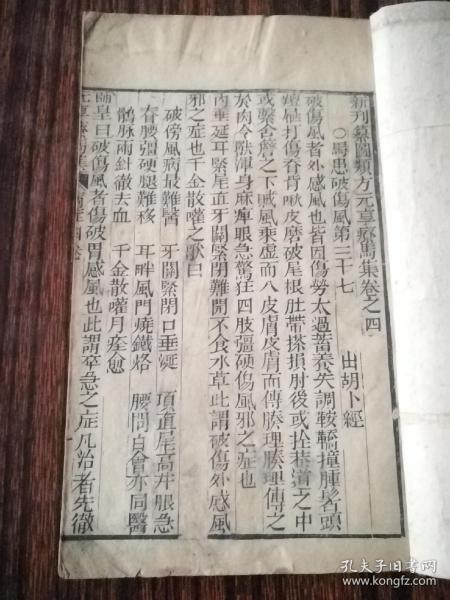 新刊纂圖類方元亨療馬集卷之四
○馬患破傷風第三十七　出胡卜經
破傷風者外感風也皆因傷勞太過蓄養失調鞍韉撞腫鬐頭
打傷脊背瘶皮磨破尾根肚帶搽損肘後或拴巷道之中
或繫舍簷之下賊風乘虛而入皮膚皮膚而傳腠理腠理傳之
於肉令獸渾身麻痺眼急驚狂四肢彊硬傷風邪之症也
內垂延耳緊尾直牙關緊閉難開不食水草此謂破傷外感風
邪之症也千金散嚾之歌曰
破傷風病最難醫　牙關緊閉口垂涎　項直尾高幷眼急
脊腰彊硬腿難移　耳畔風門燒鐵烙　腰間百會亦同醫
鶻脉兩針徹去血　千金散嚾月痊愈
師皇曰破風者傷破胃感風也此謂卒急之症凡治者先徹
孔夫子旧书网
www.kongfz.com